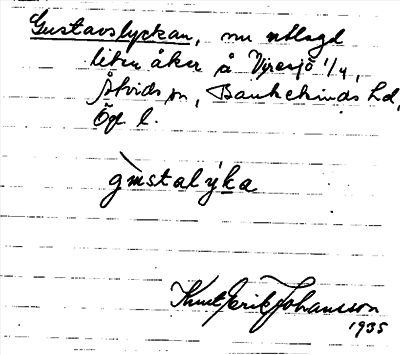 Gustavslyckan, nu utlagd
liten åker å Vyresjö 1/4,
Åtvids sn, Bankekinds hd,
Ögl l.
gùstalýka
Knut Erik Johansson
1935